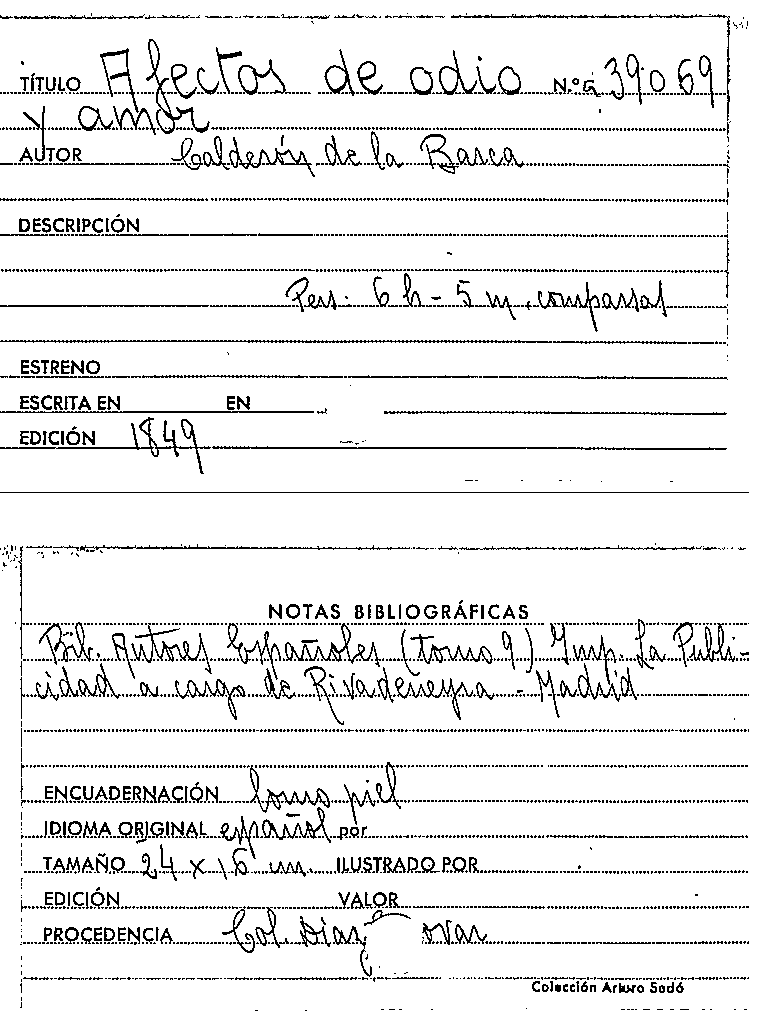 TÍTULO Afectos de odio N.º 39069
y amor
AUTOR Calderón de la Barca
DESCRIPCIÓN
Pers. 6 h - 5 m. comparsas
ESTRENO
ESCRITA EN EN
EDICIÓN 1849
NOTAS BIBLIOGRÁFICAS
Bib. Autores Españoles (tomo 9) Imp. La Publi-
cidad a cargo de Rivadeneyra - Madrid
ENCUADERNACIÓN lomo piel
IDIOMA ORIGINAL español por
TAMAÑO 24 x 16 cm. ILUSTRADO POR
EDICIÓN VALOR
PROCEDENCIA Col. Díaz
Colección Arturo Sedó